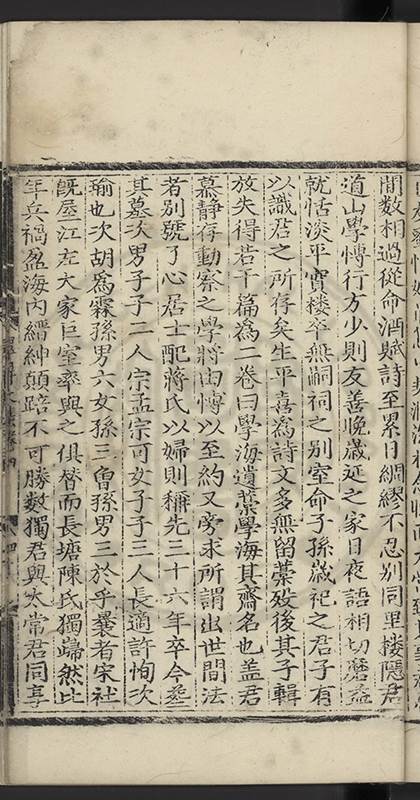 間數相過從命酒賦詩至累日綢繆不忍別同里樓隱君
道山學博行方少則友善晚歲延之家日夜語相切磨益
就恬淡平實樓卒無嗣祠之別室命子孫歲祀之君子有
以識君之所存矣生平喜為詩文多無留藁歿後其子輯
放失得若干篇為二卷曰學海遺藁學海其齋名也盖君
慕静存動察之學將由博以至約又旁求所謂出世間法
者別號了心居士配蔣氏以婦則稱先三十六年卒今葬
其墓次男子子二人宗孟宗可女子子三人長適許恂次
瑜也次胡為霖孫男六女孫三曾孫男三於乎曩者宋社
旣屋江左大家巨室率與之俱替而長塘陳氏獨歸然此
年兵禍盈海内縉紳顛踣不可勝數獨君與太常君同享